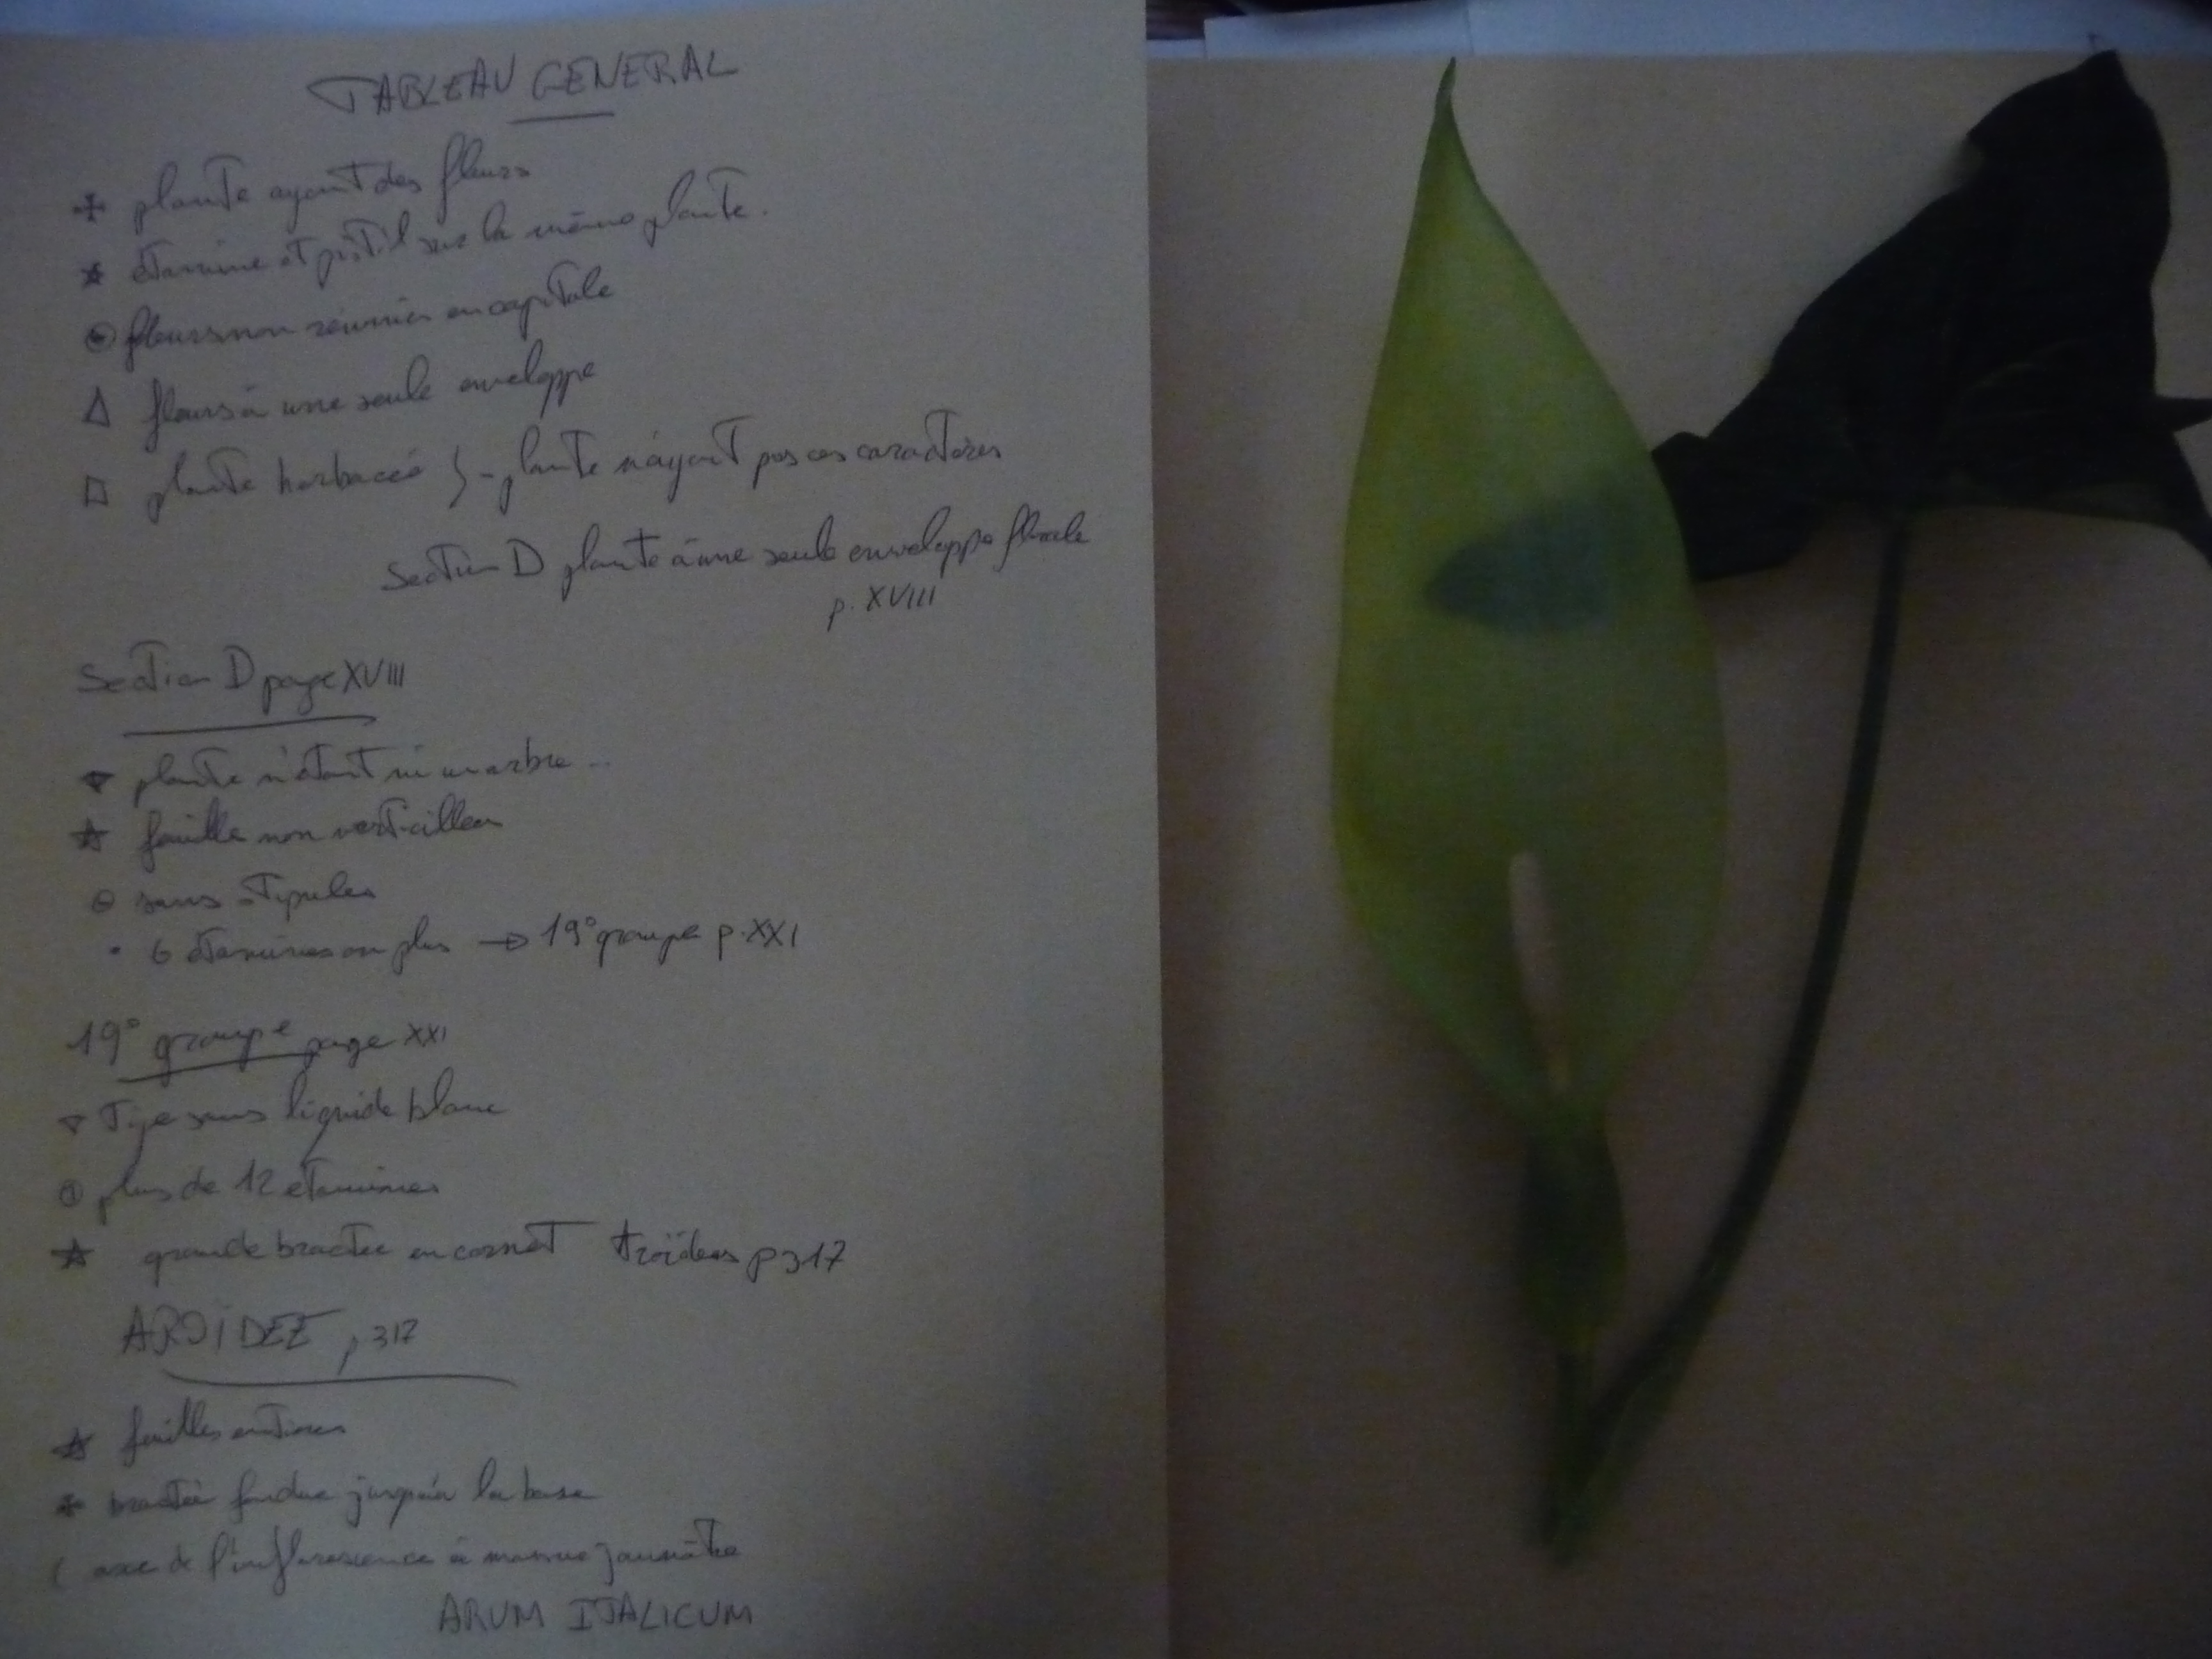 TABLEAU GENERAL
plante ayant des fleurs
étamine et pistil sur la même plante.
fleurs non réunies en capitule
fleurs à une seule enveloppe
plante herbacée } - plante n'ayant pas ces caractères
Section D plante à une seule enveloppe florale
p. XVIII
Section D page XVIII
plante n'étant ni un arbre ...
feuille non verticillées
sans stipules
• 6 étamines ou plus → 19° groupe p. XXI
19° groupe page XXI
Tige sans liquide blanc
plus de 12 étamines
grande bractée en cornet Aroïdées p 317
AROÏDEE p 317
feuilles entières
bractée fendue jusqu'à la base
( axe de l'inflorescence à massue jaunâtre
ARUM ITALICUM